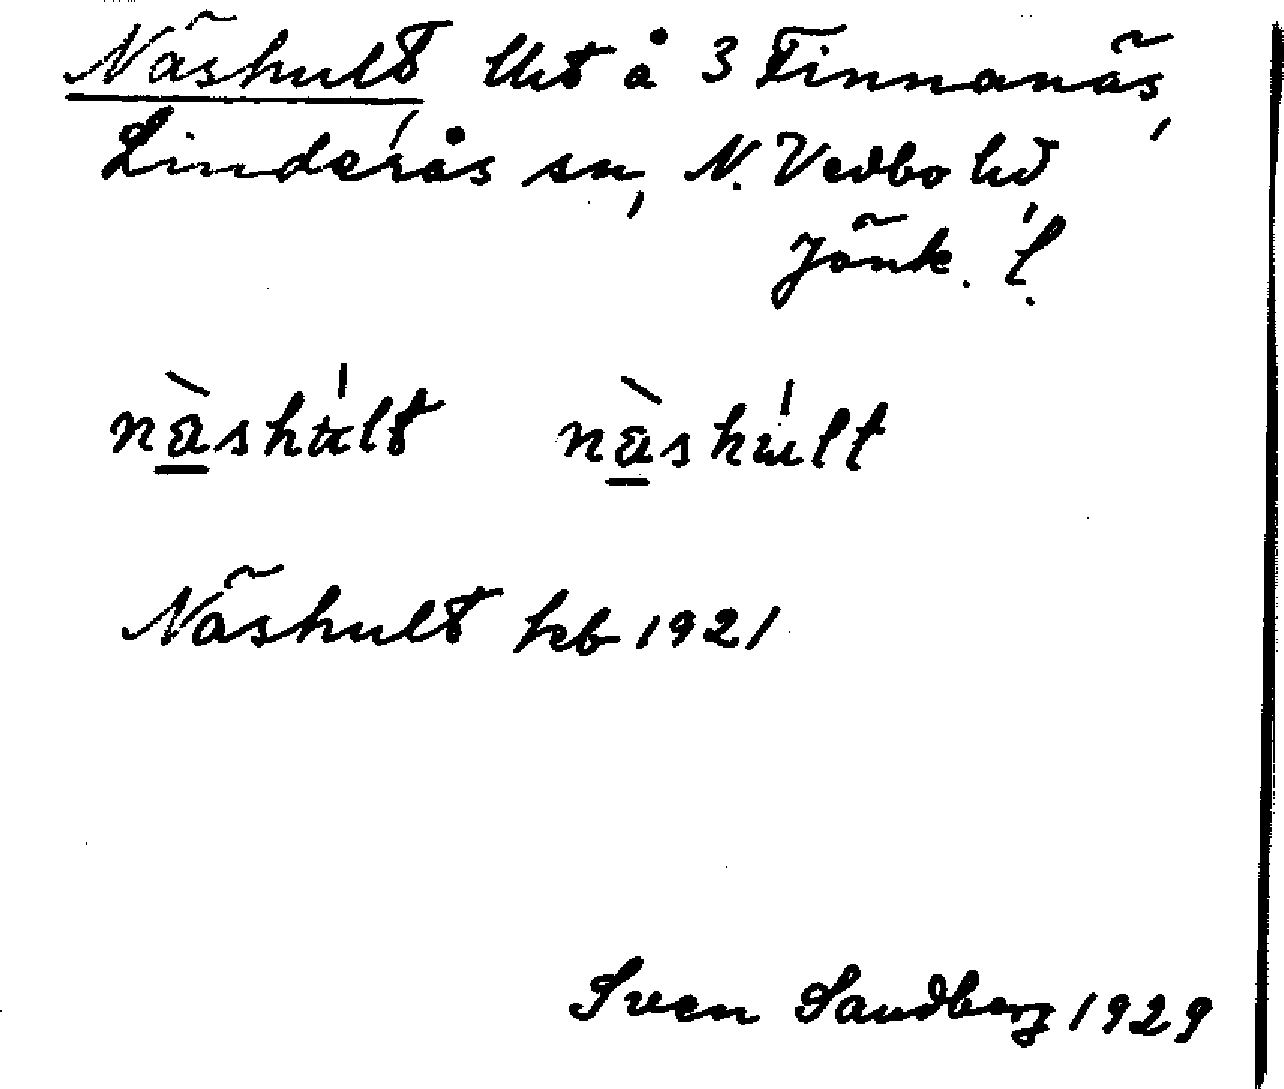 Näshult, lht å 3 Finnanäs,
Linderås sn, N. Vedbo hd,
Jönk. l.
nàshúlt nàshúlt
Näshult kb 1921
Sven Sandberg 1929